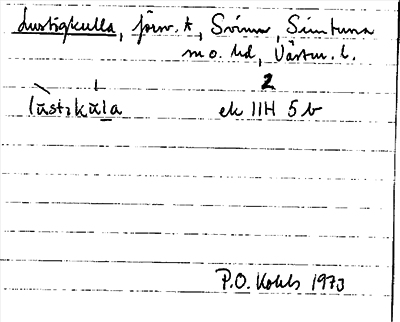 Lustigkulla, förv. t, Svinn, Simtuna
m o. hd, Västm. l.
2
lùstikúla ek 11H 5 b
P.O. Kohls 1973